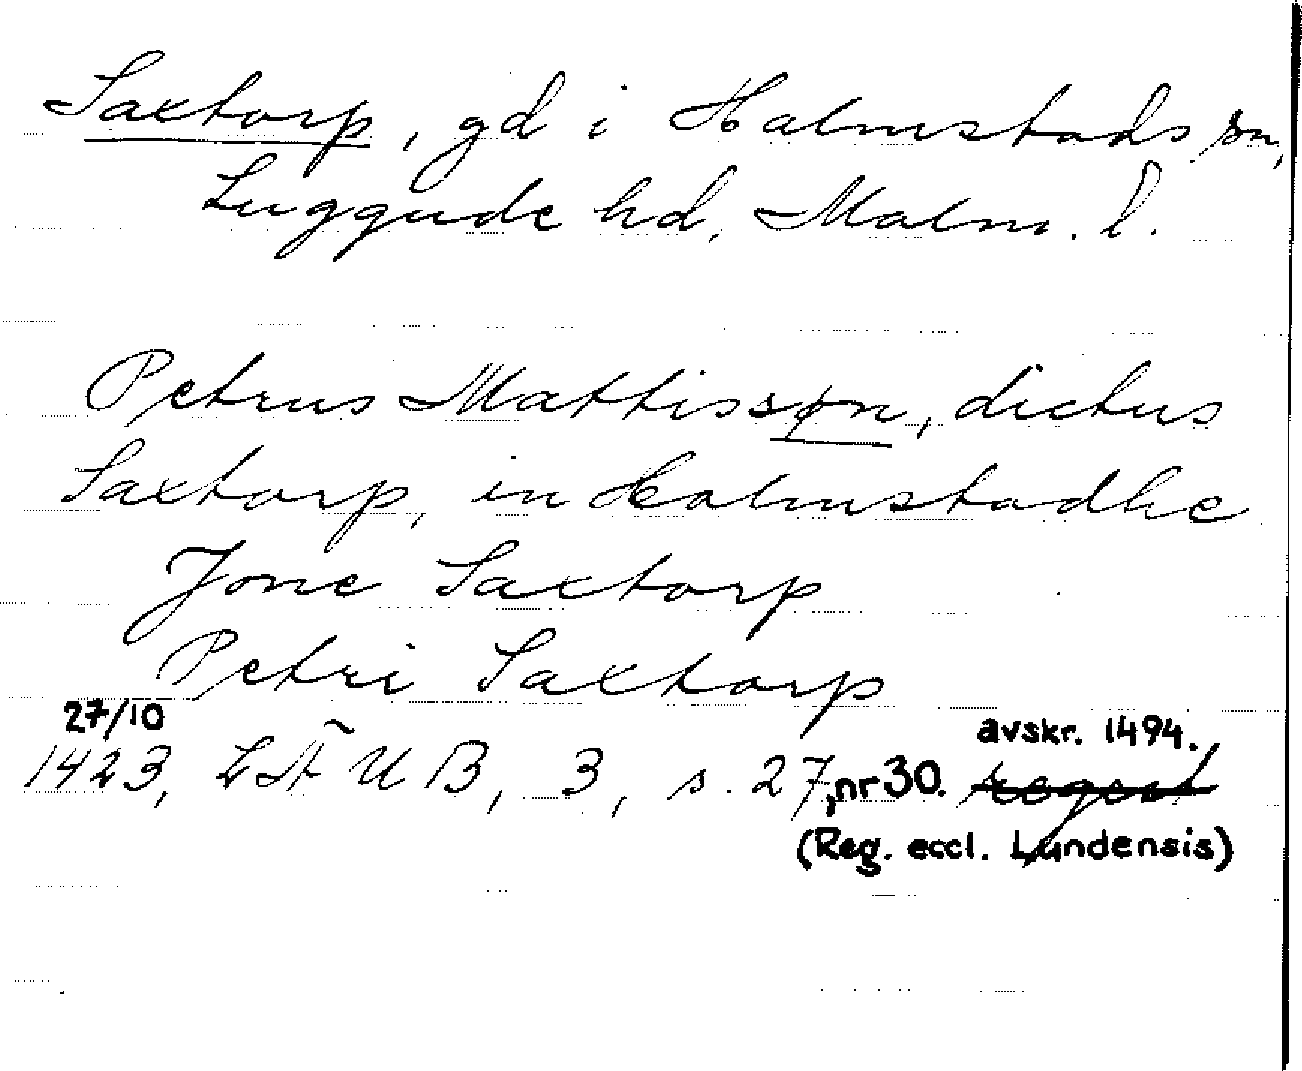 Saxtorp, gd i Halmstads sn,
Luggude hd, Malm. l.
Petrus Mattissøn, dictus
Saxtorp, in Halmstadhe
Jone Saxtorp
Petri Saxtorp
27/10
avskr. 1494.
1423, LÄUB, 3, s. 27, nr 30.
(Reg. eccl. Lundensis)